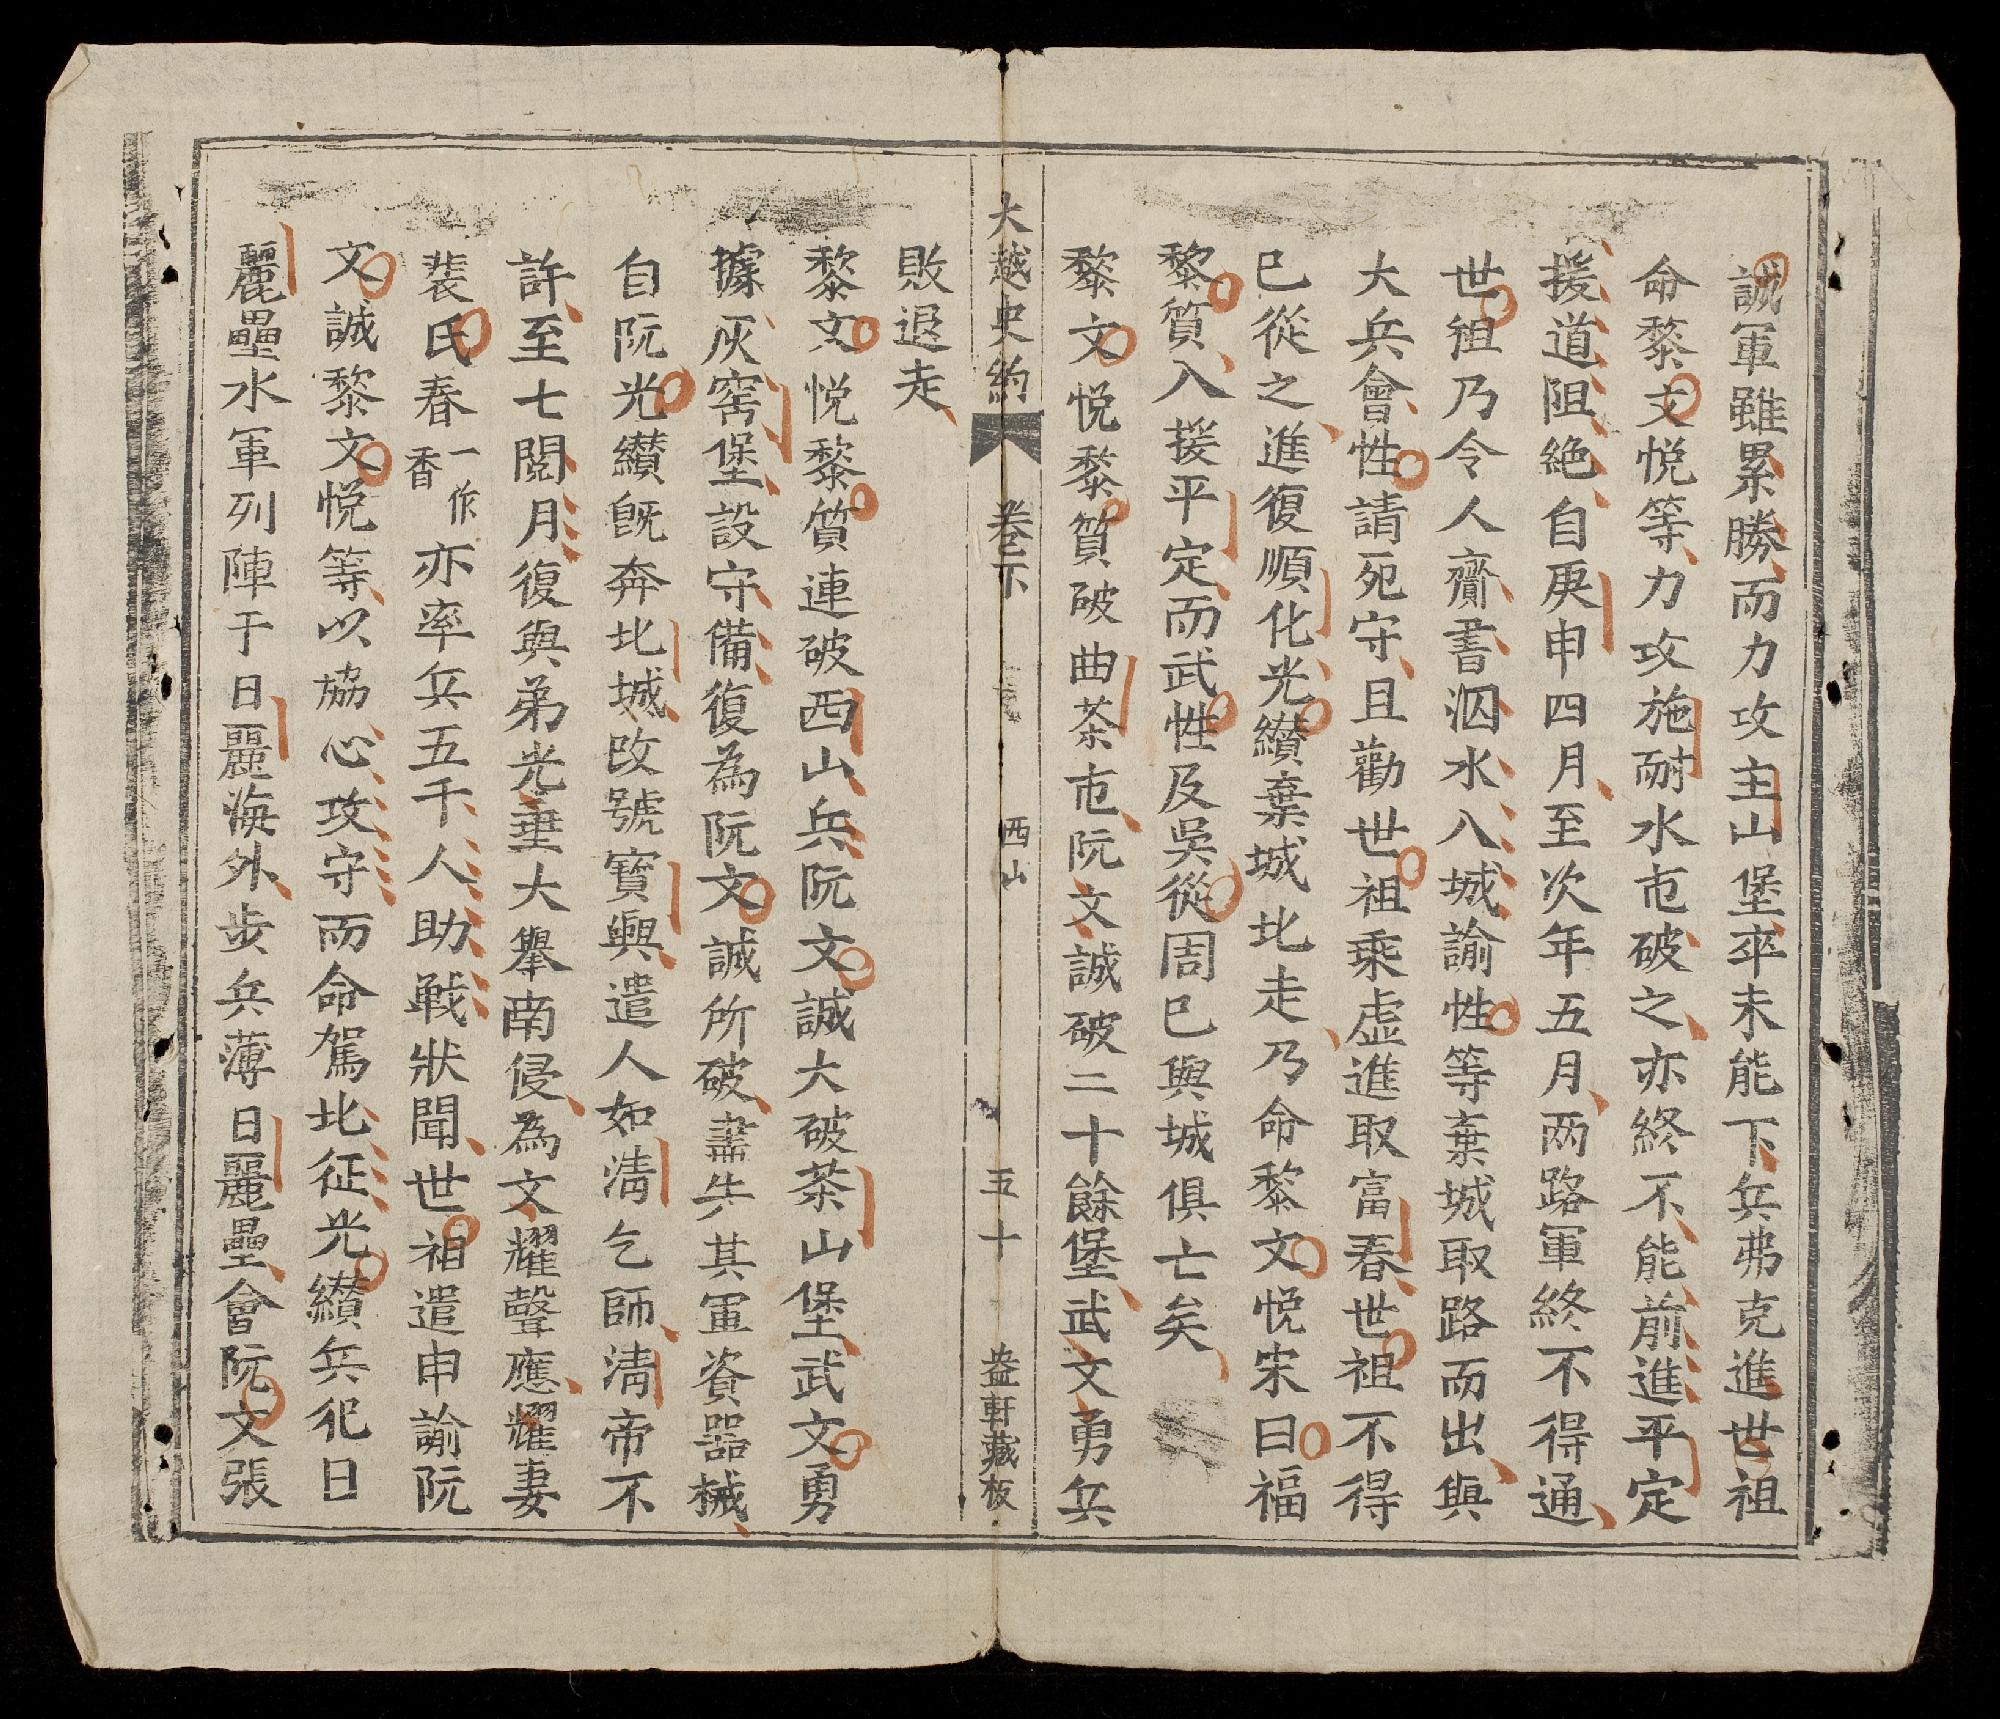 誠軍雖累勝而力攻主山堡卒未能下兵弗克進世祖
命黎文悦等力攻施耐水市破之亦終不能前進平定
援道阻絶自庚申四月至次年五月两路軍終不得通
世祖乃令人齎書泅水入城諭性等棄城取路而出與
大兵會性請死守且勸世祖乘虚進取富春世祖不得
已從之進復順化光纘棄城北走乃命黎文悦宋曰福
黎質入援平定而武性及吳從周已與城俱亡矣
黎文悦黎質破曲茶市阮文誠破二十餘堡武文勇兵
大越史約 卷下 西山 五十 盎軒藏板
敗退走
黎文悦黎質連破西山兵阮文誠大破茶山堡武文勇
據灰窖堡設守備復為阮文誠所破盡失其軍資器械
自阮光纘旣奔北城改號寳興遣人如淸乞師淸帝不
許至七閲月復與弟光垂大舉南侵為文耀聲應耀妻
裴氏春一作香亦率兵五千人助戰狀聞世祖遣申諭阮
文誠黎文悦等以協心攻守而命駕北征光纘兵犯日
麗壘水軍列陣于日麗海外步兵薄日麗壘會阮文張